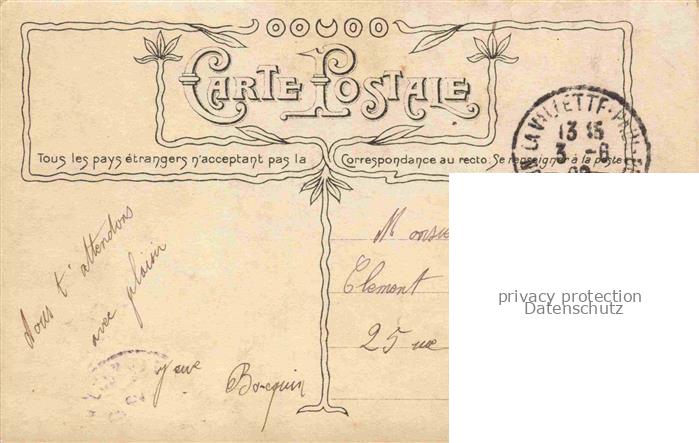 CARTE POSTALE
Tous les pays étrangers n'acceptant pas la Correspondance au recto. Se renseigner à la poste
LA VILLETTE-
13 15
3 -6
Nous t'attendons
avec plaisir
Monsie
Clement
25 rue
privacy protection
Datenschutz